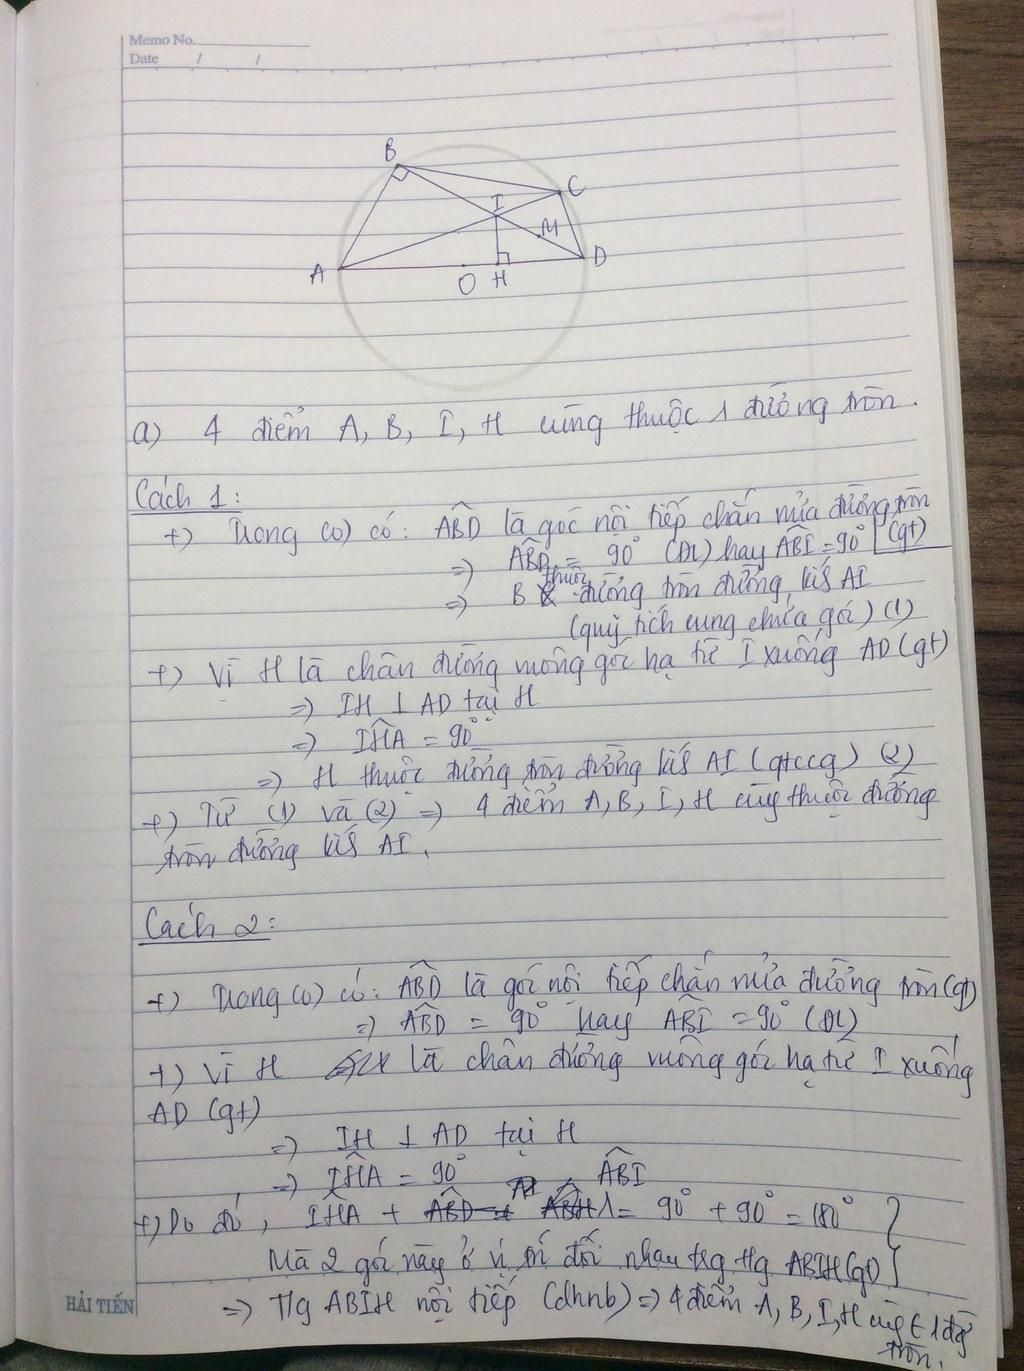 Memo No.
Date / /
B
C
I
M
A
O
H
D
a) 4 điểm A, B, I, H cùng thuộc 1 đường tròn.
Cách 1:
+) Trong (O) có: ABD là góc nội tiếp chắn nửa đường tròn (gt)
=> ABD = 90° (ĐL) hay ABI = 90°
=> B thuộc đường tròn đường kính AI
(quỹ tích cung chứa góc) (1)
+) Vì H là chân đường vuông góc hạ từ I xuống AD (gt)
=> IH ⊥ AD tại H
=> IHA = 90°
=> H thuộc đường tròn đường kính AI (qtccg) (2)
+) Từ (1) và (2) => 4 điểm A, B, I, H cùng thuộc đường
tròn đường kính AI.
Cách 2:
+) Trong (O) có: ABD là góc nội tiếp chắn nửa đường tròn (gt)
=> ABD = 90° hay ABI = 90° (ĐL)
+) Vì H là chân đường vuông góc hạ từ I xuống
AD (gt)
=> IH ⊥ AD tại H
=> IHA = 90°
+) Do đó, IHA + ABI = 90° + 90° = 180°
Mà 2 góc này ở vị trí đối nhau trg tứg ABIH (gt)
=> T/g ABIH nội tiếp (dhnb) => 4 điểm A, B, I, H cùng ∈ 1 đg
tròn.
HẢI TIẾN